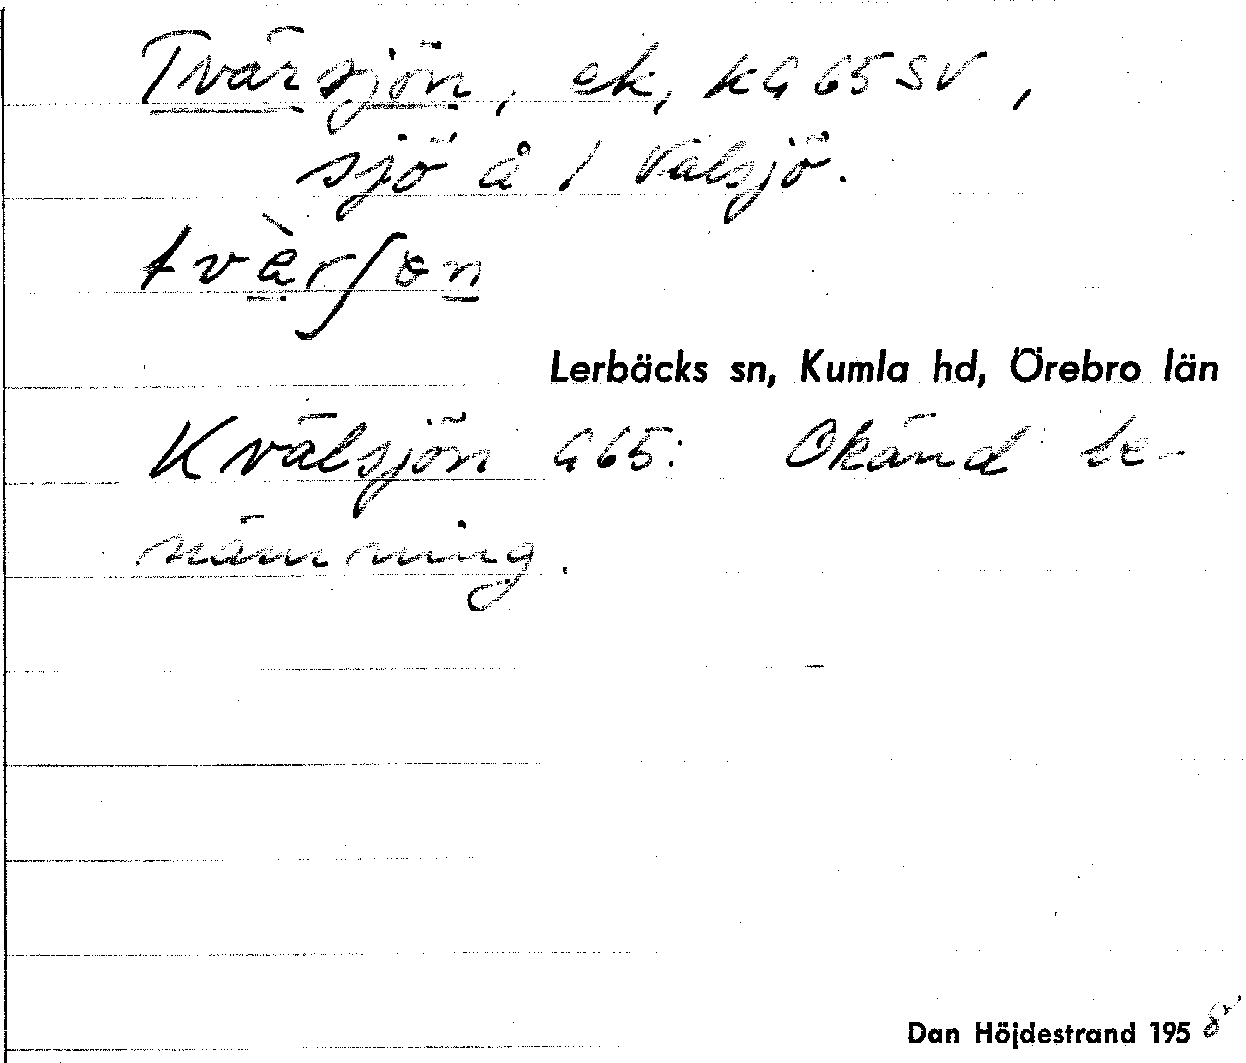 Tvärsjön, ek, kG 65 SV,
sjö å 1 Välsjö.
tvèrʃɵn
Lerbäcks sn, Kumla hd, Örebro län
Kvälsjön G65: Okänd be-
nämning.
Dan Höjdestrand 1958